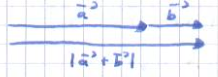 a⃗ b⃗
|a⃗+b⃗|